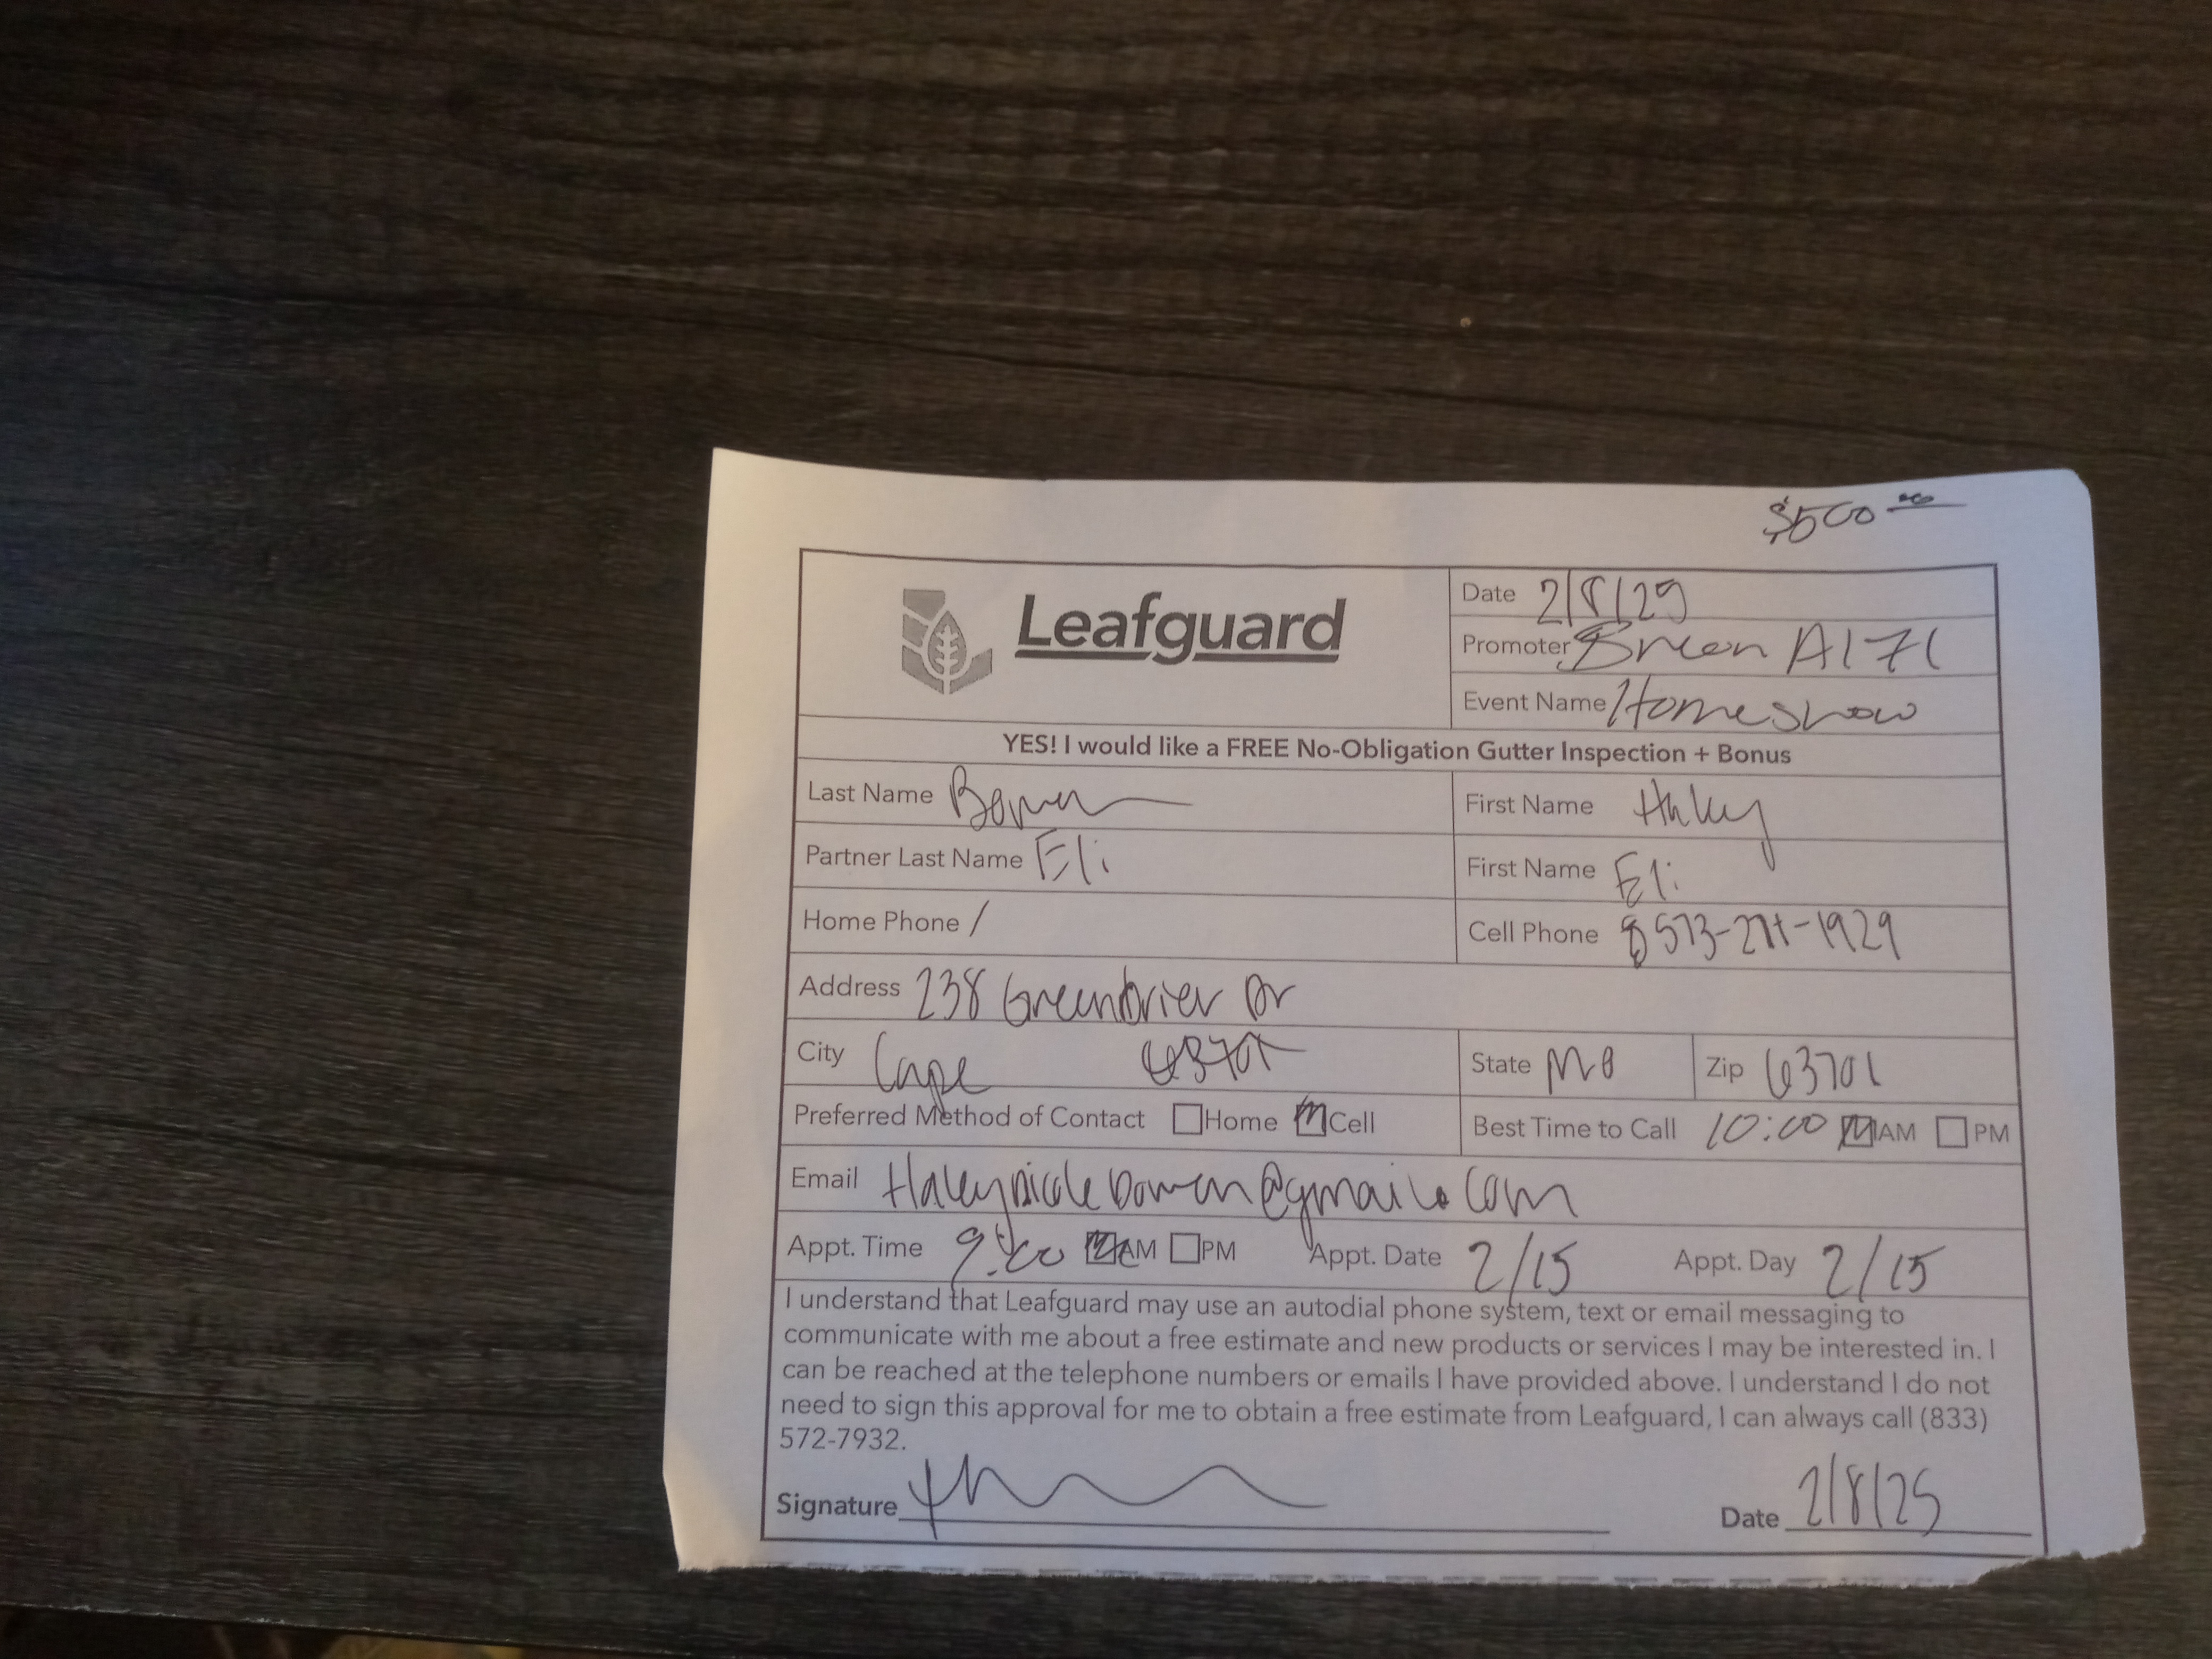 $500.00
Leafguard
Date 2/8/25
Promoter Breon A171
Event Name Homeshow
YES! I would like a FREE No-Obligation Gutter Inspection + Bonus
Last Name Bowen First Name Haley
Partner Last Name Eli First Name Eli
Home Phone / Cell Phone 573-271-1929
Address 238 Greenbrier Dr
City Cape 63701 State MO Zip 63701
Preferred Method of Contact Home Cell Best Time to Call 10:00 AM PM
Email Haleynicolebowen@gmail.com
Appt. Time 9:00 AM PM Appt. Date 2/15 Appt. Day 2/15
I understand that Leafguard may use an autodial phone system, text or email messaging to
communicate with me about a free estimate and new products or services I may be interested in. I
can be reached at the telephone numbers or emails I have provided above. I understand I do not
need to sign this approval for me to obtain a free estimate from Leafguard, I can always call (833)
572-7932.
Signature Date 2/8/25